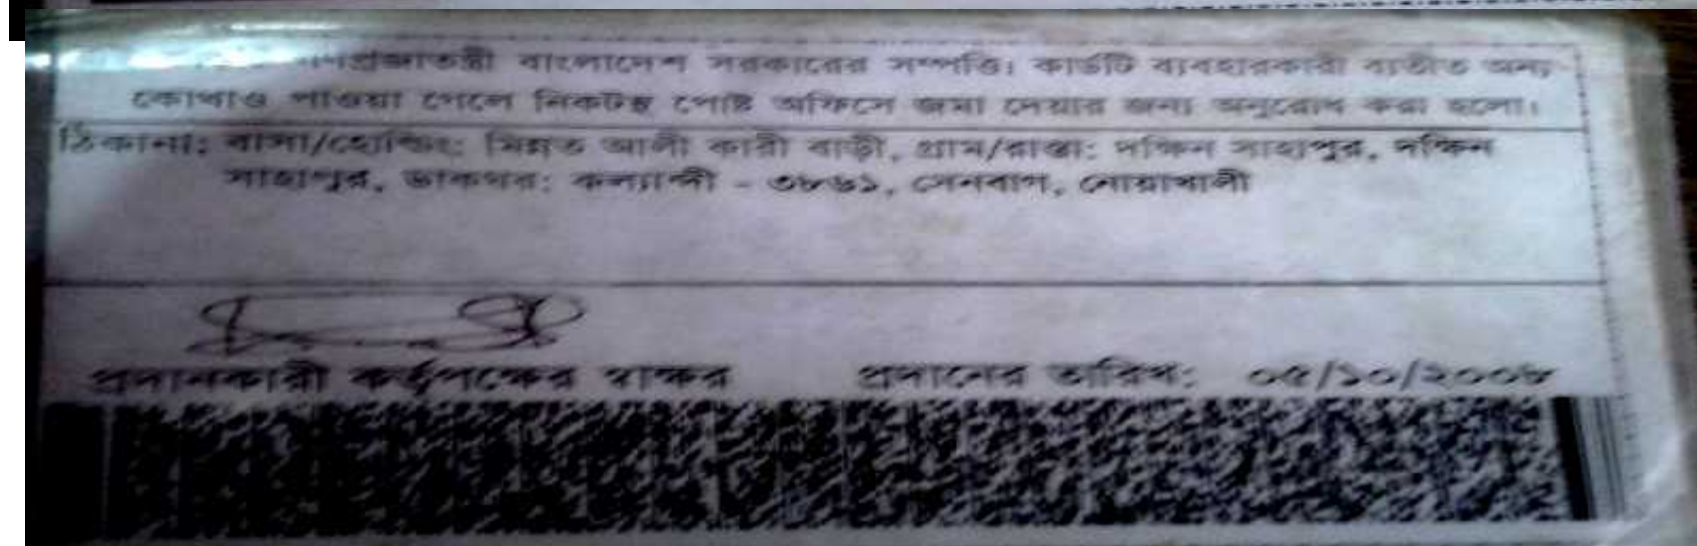 গণপ্রজাতন্ত্রী বাংলাদেশ সরকারের সম্পত্তি। কার্ডটি ব্যবহারকারী ব্যতীত অন্য
কোথাও পাওয়া গেলে নিকটস্থ পোষ্ট অফিসে জমা দেয়ার জন্য অনুরোধ করা হলো।
ঠিকানা: বাসা/হোল্ডিং: মিন্নত আলী কারী বাড়ী, গ্রাম/রাস্তা: দক্ষিন সাহাপুর, দক্ষিন
সাহাপুর, ডাকঘর: কল্যান্দী - ৩৮৬১, সেনবাগ, নোয়াখালী
প্রদানকারী কর্তৃপক্ষের স্বাক্ষর প্রদানের তারিখ: ০৫/১০/২০০৮